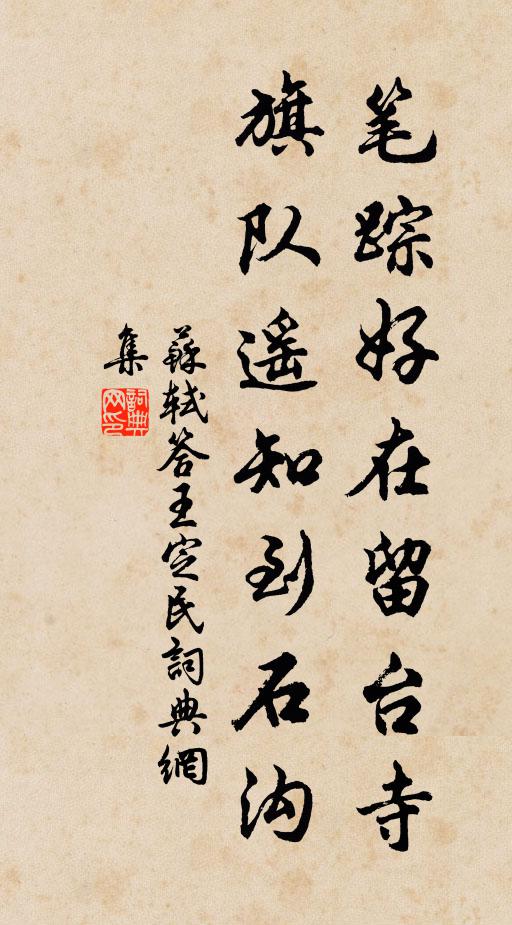 笔踪好在留台寺
旗队遥知到石沟
蘇轼答王定民詞典網
集
詞典
网印